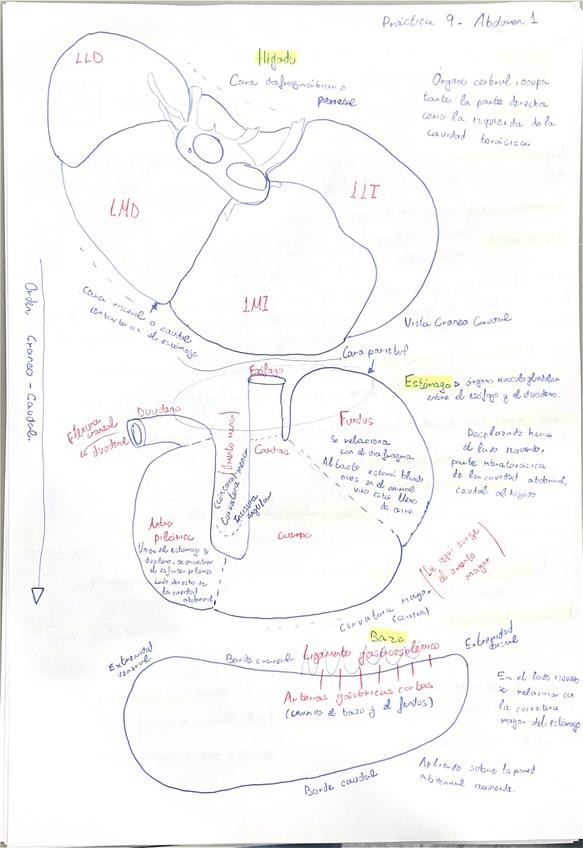 Práctica 9 - Abdomen 1
LLD
Hígado
Cara diafragmática o
parietal
Órgano central, ocupa
tanto la parte derecha
como la izquierda de la
cavidad torácica
LMD
LLI
LMI
Cara visceral o caudal
contacto con el estómago
Orden Craneo-Caudal
Vista Craneo Caudal
Cara parietal
Esófago
Estómago órgano musculoglandular
entre el esófago y el duodeno.
Duodeno
Flexura
craneal
duodenal
Fundus
Se relaciona
con el diafragma
Al tacto estomá blando
pues en el animal
vivo está lleno
de aire.
Desplazado hacia
el lado izquierdo,
parte intratorácica
de la cavidad abdominal,
caudal al hígado
Cardias
(omento menor)
Curvatura menor
(cóncava)
Incisura
angular
Antro
pilórico
Une el estómago y
duodeno, se encuentra
el esfínter pilórico
lado derecho de
la cavidad
abdominal
Cuerpo
De aquí surge
el omento
mayor
Curvatura mayor
(convexa)
Bazo
Extremidad
ventral
Borde craneal
Ligamento gastroesplénico
Extremidad
dorsal
Arterias gástricas cortas
(uniendo el bazo y el fundus)
En el lado izquierdo
se relaciona con
la curvatura
mayor del estómago
Aplicado sobre la pared
abdominal izquierda.
Borde caudal